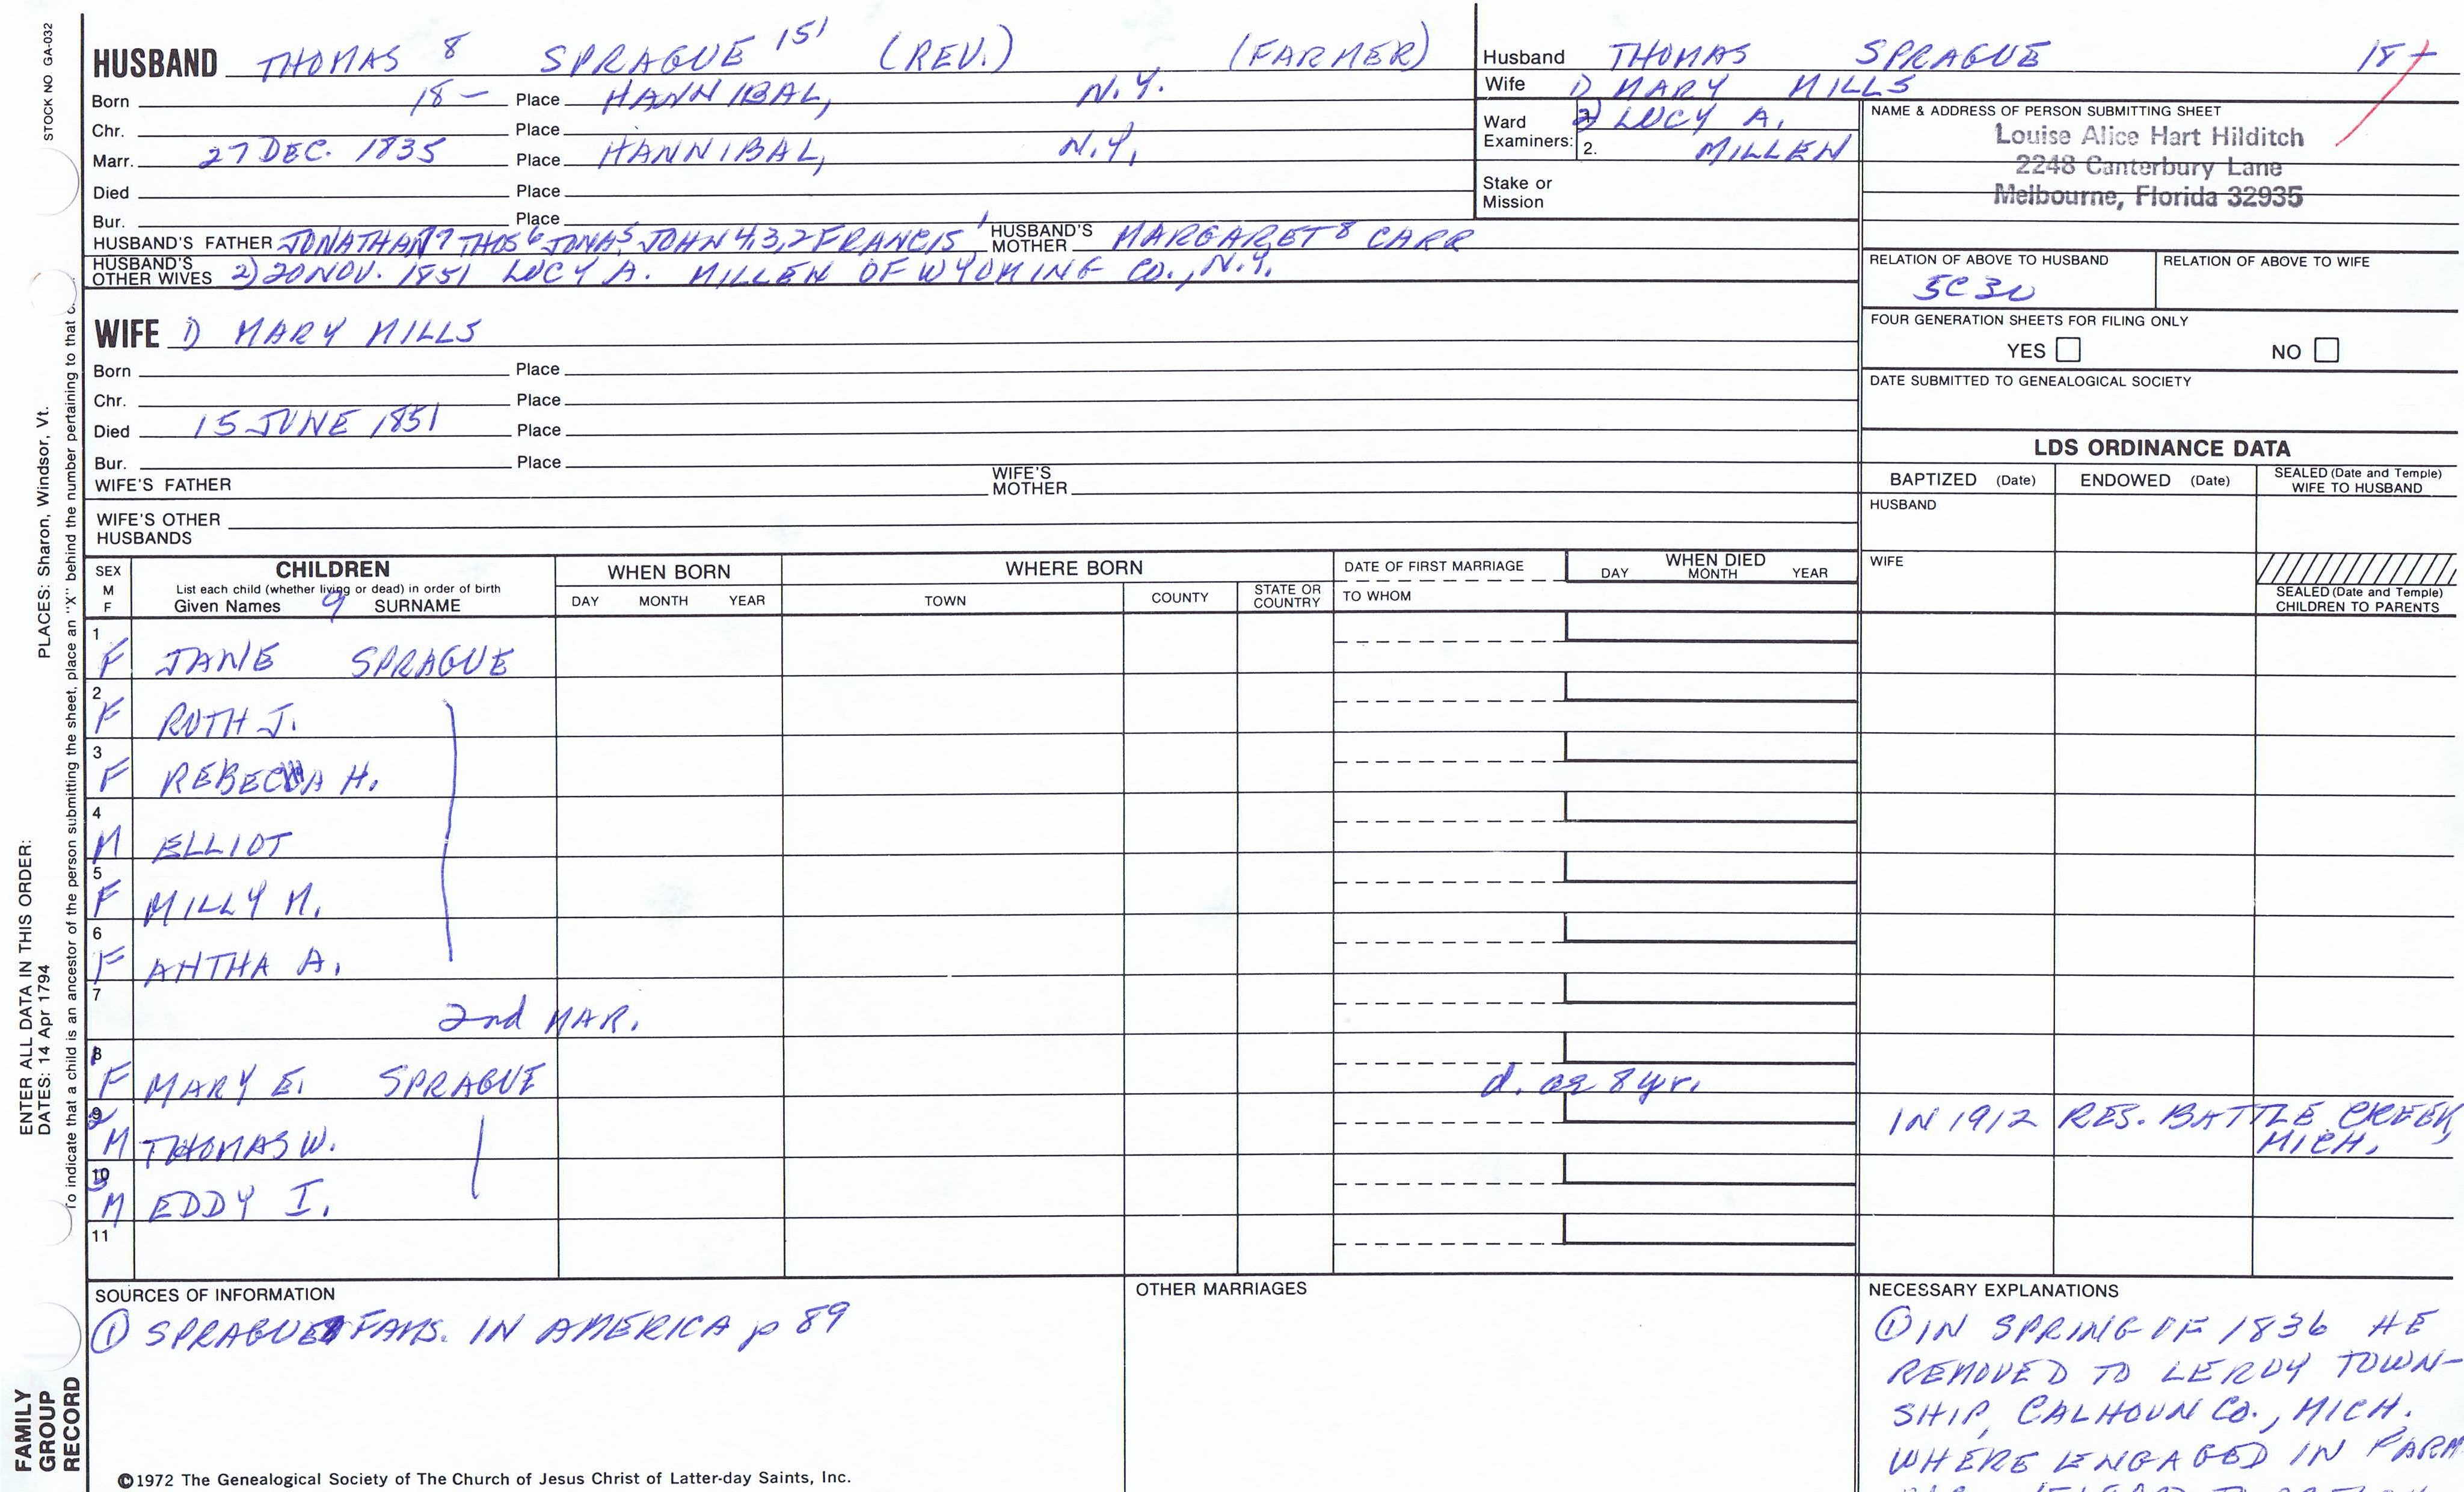 STOCK NO GA-032
HUSBAND THOMAS 8 SPRAGUE 151 (REV.) (FARMER)
Born 18 - Place HANNIBAL, N.Y.
Chr. Place
Marr. 27 DEC. 1835 Place HANNIBAL, N.Y.
Died Place
Bur. Place
HUSBAND'S FATHER JONATHAN 7 THOS 6 JONAS 5 JOHN 4,3,2 FRANCIS 1 HUSBAND'S MOTHER MARGARET 8 CARR
HUSBAND'S OTHER WIVES 2) 20 NOV. 1851 LUCY A. MILLEN OF WYOMING CO., N.Y.
Husband THOMAS SPRAGUE 18 -
Wife 1) MARY MILLS
Ward Examiners: 2) LUCY A.
2. MILLEN
Stake or Mission
NAME & ADDRESS OF PERSON SUBMITTING SHEET
Louise Alice Hart Hilditch
2248 Canterbury Lane
Melbourne, Florida 32935
RELATION OF ABOVE TO HUSBAND RELATION OF ABOVE TO WIFE
5C3U
FOUR GENERATION SHEETS FOR FILING ONLY
YES NO
DATE SUBMITTED TO GENEALOGICAL SOCIETY
WIFE 1) MARY MILLS
Born Place
Chr. Place
Died 15 JUNE 1851 Place
Bur. Place
WIFE'S FATHER WIFE'S MOTHER
WIFE'S OTHER HUSBANDS
LDS ORDINANCE DATA
BAPTIZED (Date) ENDOWED (Date) SEALED (Date and Temple) WIFE TO HUSBAND
HUSBAND
WIFE
SEALED (Date and Temple) CHILDREN TO PARENTS
SEX M F
CHILDREN
List each child (whether living or dead) in order of birth
Given Names 9 SURNAME
WHEN BORN
DAY MONTH YEAR
WHERE BORN
TOWN COUNTY STATE OR COUNTRY
DATE OF FIRST MARRIAGE
TO WHOM
WHEN DIED
DAY MONTH YEAR
1 F JANE SPRAGUE
2 F RUTH J.
3 F REBECCA H.
4 M ELLIOT
5 F MILLY M.
6 F ANTHA A.
7 2nd MAR.
8 F MARY E. SPRAGUE d. ag 8 yr.
9 M THOMAS W. IN 1912 RES. BATTLE CREEK, MICH.
10 M EDDY I.
11
SOURCES OF INFORMATION
① SPRAGUE FAMS. IN AMERICA p 89
OTHER MARRIAGES
NECESSARY EXPLANATIONS
① IN SPRING OF 1836 HE
REMOVED TO LEROY TOWN-
SHIP, CALHOUN CO., MICH.
WHERE ENGAGED IN FARM
©1972 The Genealogical Society of The Church of Jesus Christ of Latter-day Saints, Inc.
FAMILY GROUP RECORD
ENTER ALL DATA IN THIS ORDER:
DATES: 14 Apr 1794
PLACES: Sharon, Windsor, Vt.
To indicate that a child is an ancestor of the person submitting the sheet, place an "X" behind the number pertaining to that